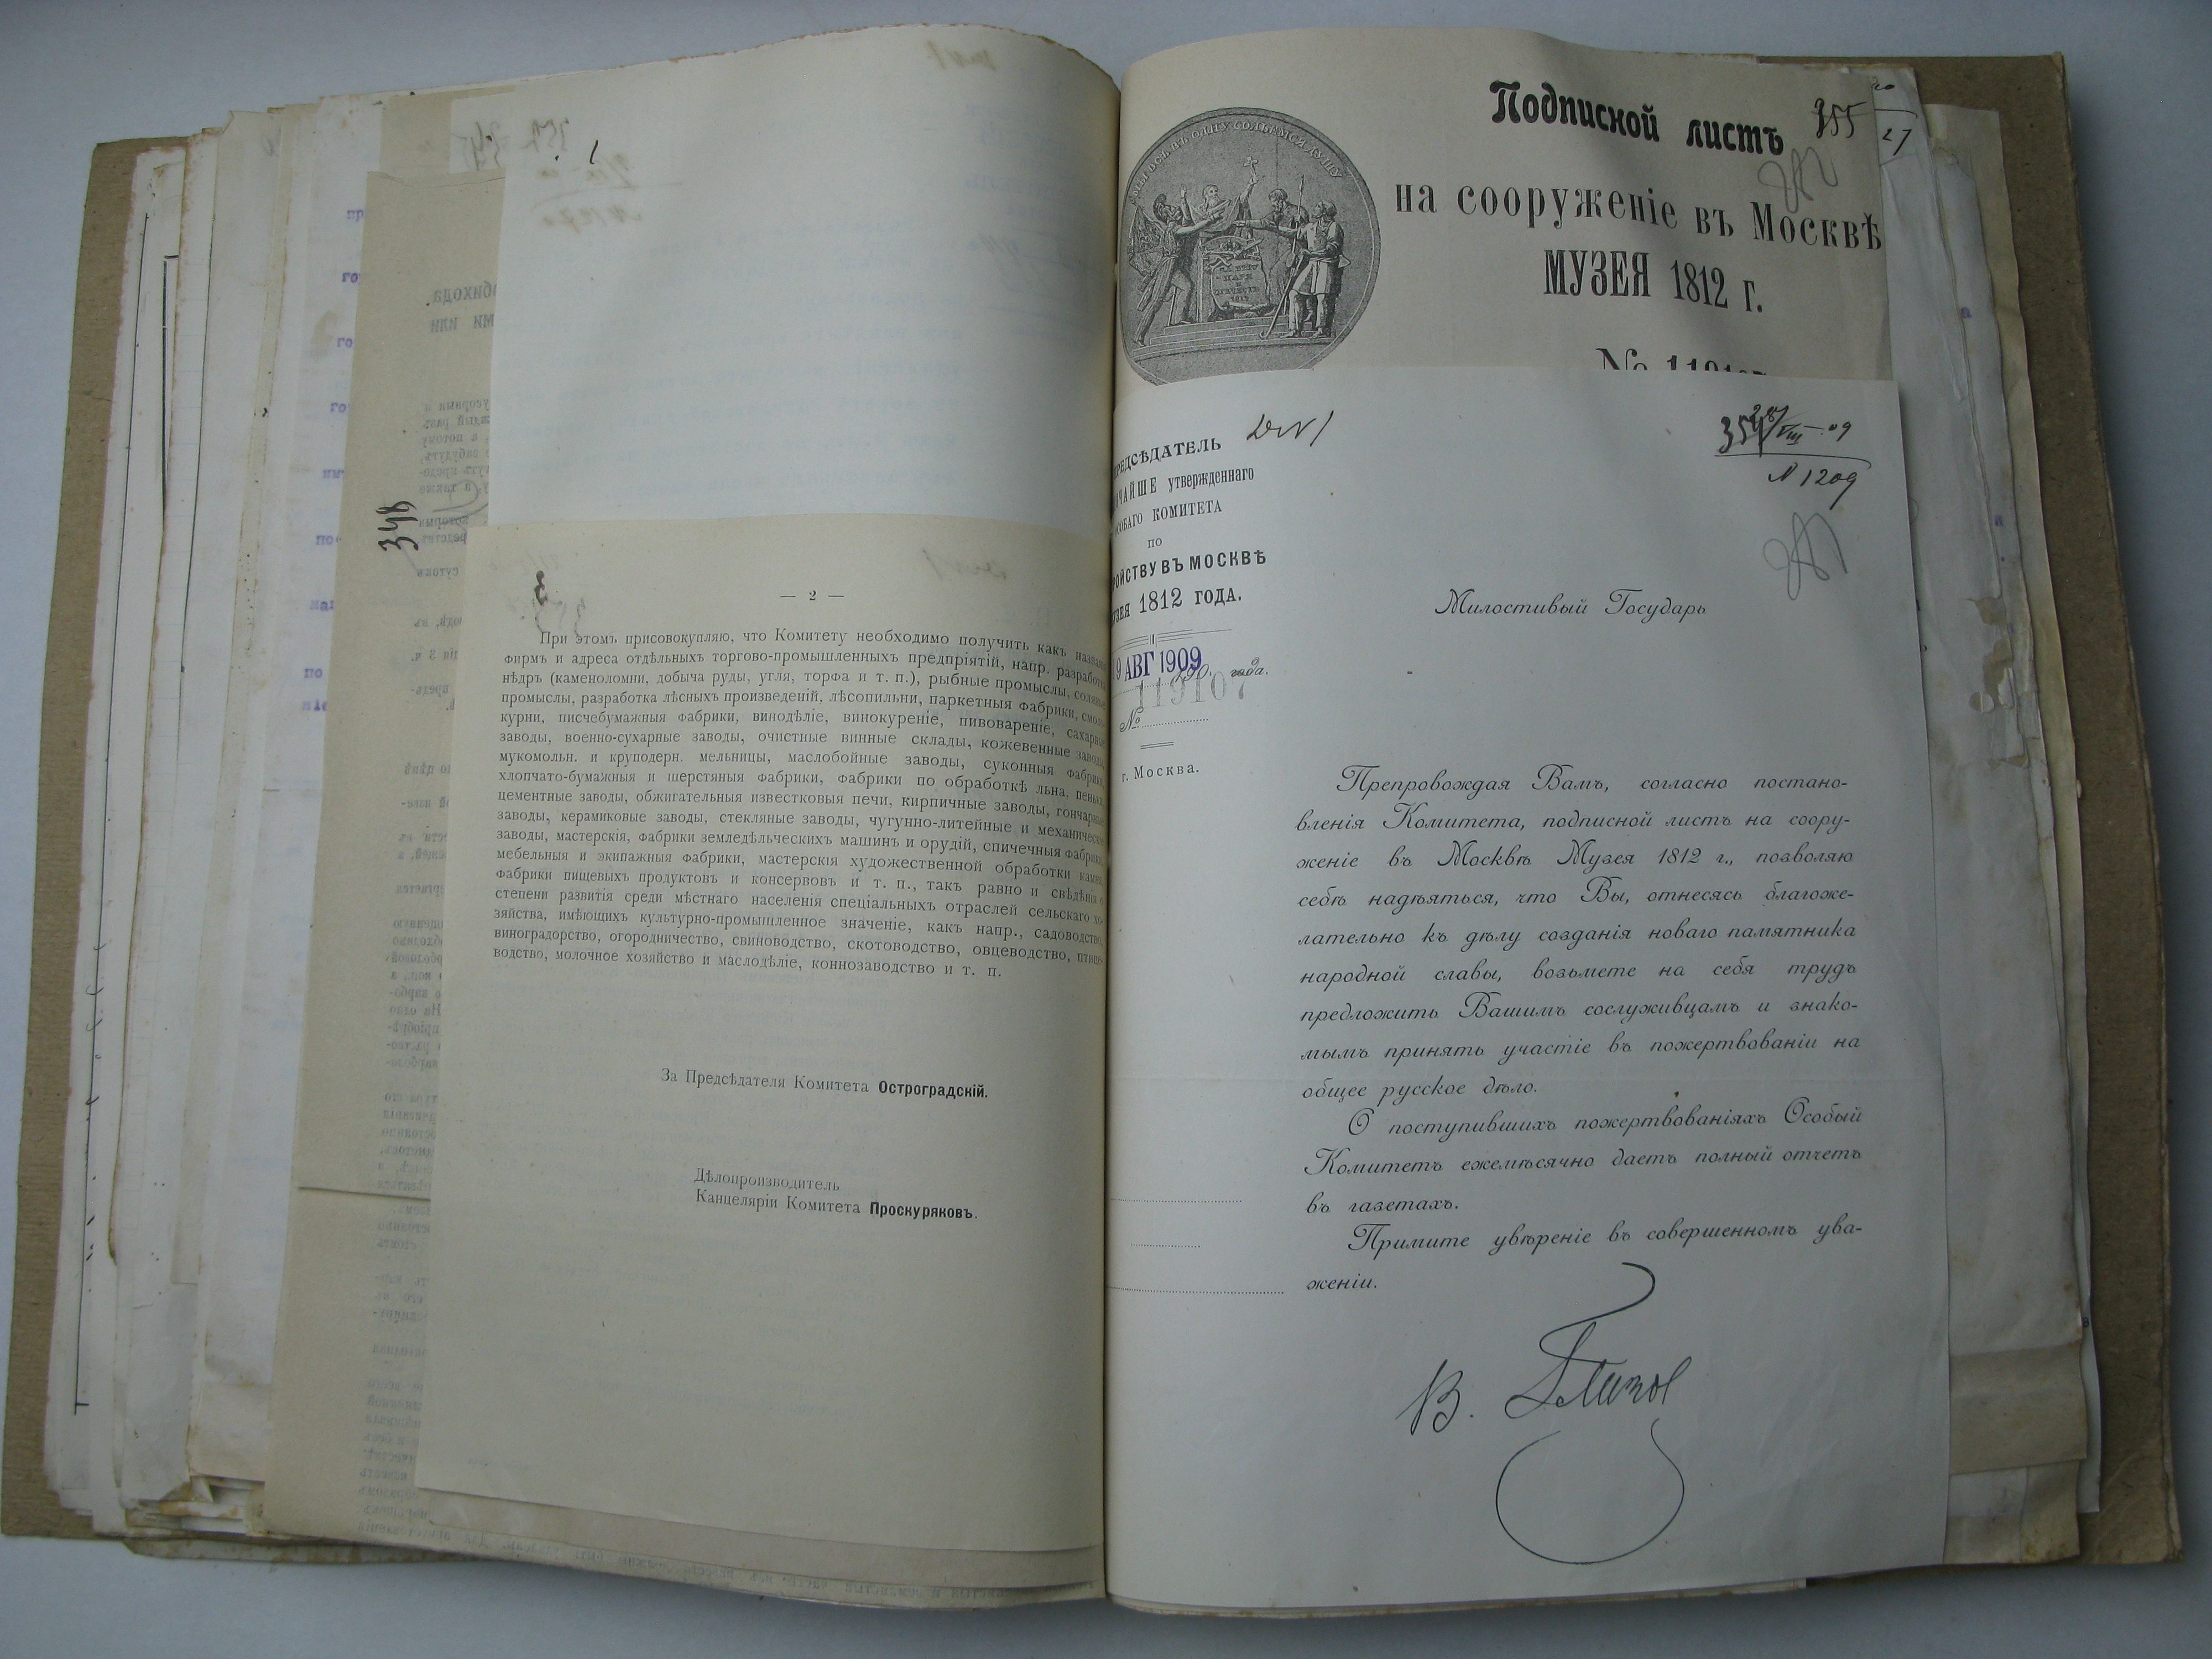 348
— 2 —
При этомъ присовокупляю, что Комитету необходимо получить какъ
фирмъ и адреса отдѣльныхъ торгово-промышленныхъ предпріятій, напр.
нѣдръ (каменоломни, добыча руды, угля, торфа и т. п.), рыбные промыслы,
промыслы, разработка лѣсныхъ произведеній, лѣсопильни, паркетныя фабрики,
курни, писчебумажныя фабрики, винодѣліе, винокуреніе, пивовареніе,
заводы, военно-сухарные заводы, очистные винные склады, кожевенные заводы,
мукомольн. и круподерн. мельницы, маслобойные заводы, суконныя фабрики,
хлопчато-бумажныя и шерстяныя фабрики, фабрики по обработкѣ льна, пеньки,
цементные заводы, обжигательныя известковыя печи, кирпичные заводы, гончарные
заводы, керамиковые заводы, стекляные заводы, чугунно-литейные и механическіе
заводы, мастерскія, фабрики земледѣльческихъ машинъ и орудій, спичечныя фабрики,
мебельныя и экипажныя фабрики, мастерскія художественной обработки камня,
фабрики пищевыхъ продуктовъ и консервовъ и т. п., такъ равно и свѣдѣнія о
степени развитія среди мѣстнаго населенія спеціальныхъ отраслей сельскаго хо-
зяйства, имѣющихъ культурно-промышленное значеніе, какъ напр., садоводство,
виноградорство, огородничество, свиноводство, скотоводство, овцеводство, птице-
водство, молочное хозяйство и маслодѣліе, коннозаводство и т. п.
За Предсѣдателя Комитета Остроградскій.
Дѣлопроизводитель
Канцеляріи Комитета Проскуряковъ.
Подписной листъ 355
на сооруженіе въ Москвѣ
МУЗЕЯ 1812 г.
№
27
МЫ ВСѢ ВЪ ОДНУ СОЛЬЕМСЯ ДУШУ
ЗА ВѢРУ
ЦАРЯ
И
ОТЕЧЕСТВ
1812
ПРЕДСѢДАТЕЛЬ
ЧАЙШЕ утвержденнаго
ОСОБАГО КОМИТЕТА
ПО
РОЙСТВУ ВЪ МОСКВѢ
МУЗЕЯ 1812 ГОДА.
9 АВГ 1909
190 года.
119107
№
г. Москва.
354
VIII 09
N 1209
Милостивый Государь
Препровождая Вамъ, согласно постано-
вленія Комитета, подписной листъ на соору-
женіе въ Москвѣ Музея 1812 г., позволяю
себѣ надѣяться, что Вы, отнесясь благоже-
лательно къ дѣлу созданія новаго памятника
народной славы, возьмете на себя трудъ
предложить Вашимъ сослуживцамъ и знако-
мымъ принять участіе въ пожертвованіи на
общее русское дѣло.
О поступившихъ пожертвованіяхъ Особый
Комитетъ ежемѣсячно даетъ полный отчетъ
въ газетахъ.
Примите увѣреніе въ совершенномъ ува-
женіи.
В.